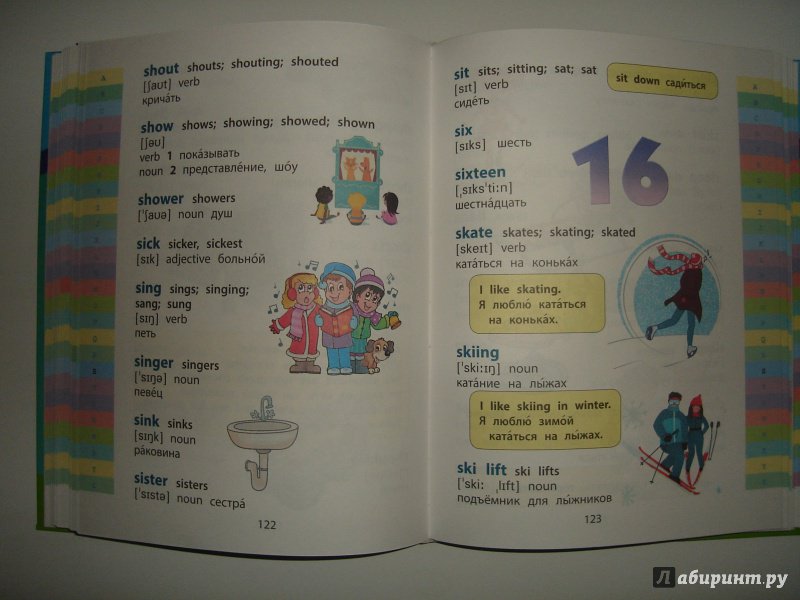 shout shouts; shouting; shouted
[ʃaʊt] verb
крича́ть
show shows; showing; showed; shown
[ʃəʊ]
verb 1 пока́зывать
noun 2 представле́ние, шо́у
shower showers
[ˈʃaʊə] noun душ
sick sicker, sickest
[sɪk] adjective больно́й
sing sings; singing;
sang; sung
[sɪŋ] verb
петь
singer singers
[ˈsɪŋə] noun
певе́ц
sink sinks
[sɪŋk] noun
ра́ковина
sister sisters
[ˈsɪstə] noun сестра́
122
sit sits; sitting; sat; sat
[sɪt] verb
сиде́ть
sit down сади́ться
six
[sɪks] шесть
sixteen
[ˌsɪksˈtiːn]
шестна́дцать
16
skate skates; skating; skated
[skeɪt] verb
ката́ться на конька́х
I like skating.
Я люблю́ ката́ться
на конька́х.
skiing
[ˈskiːɪŋ] noun
ката́ние на лы́жах
I like skiing in winter.
Я люблю́ зимо́й
ката́ться на лы́жах.
ski lift ski lifts
[ˈskiː ˌlɪft] noun
подъёмник для лы́жников
123
Лабиринт.ру